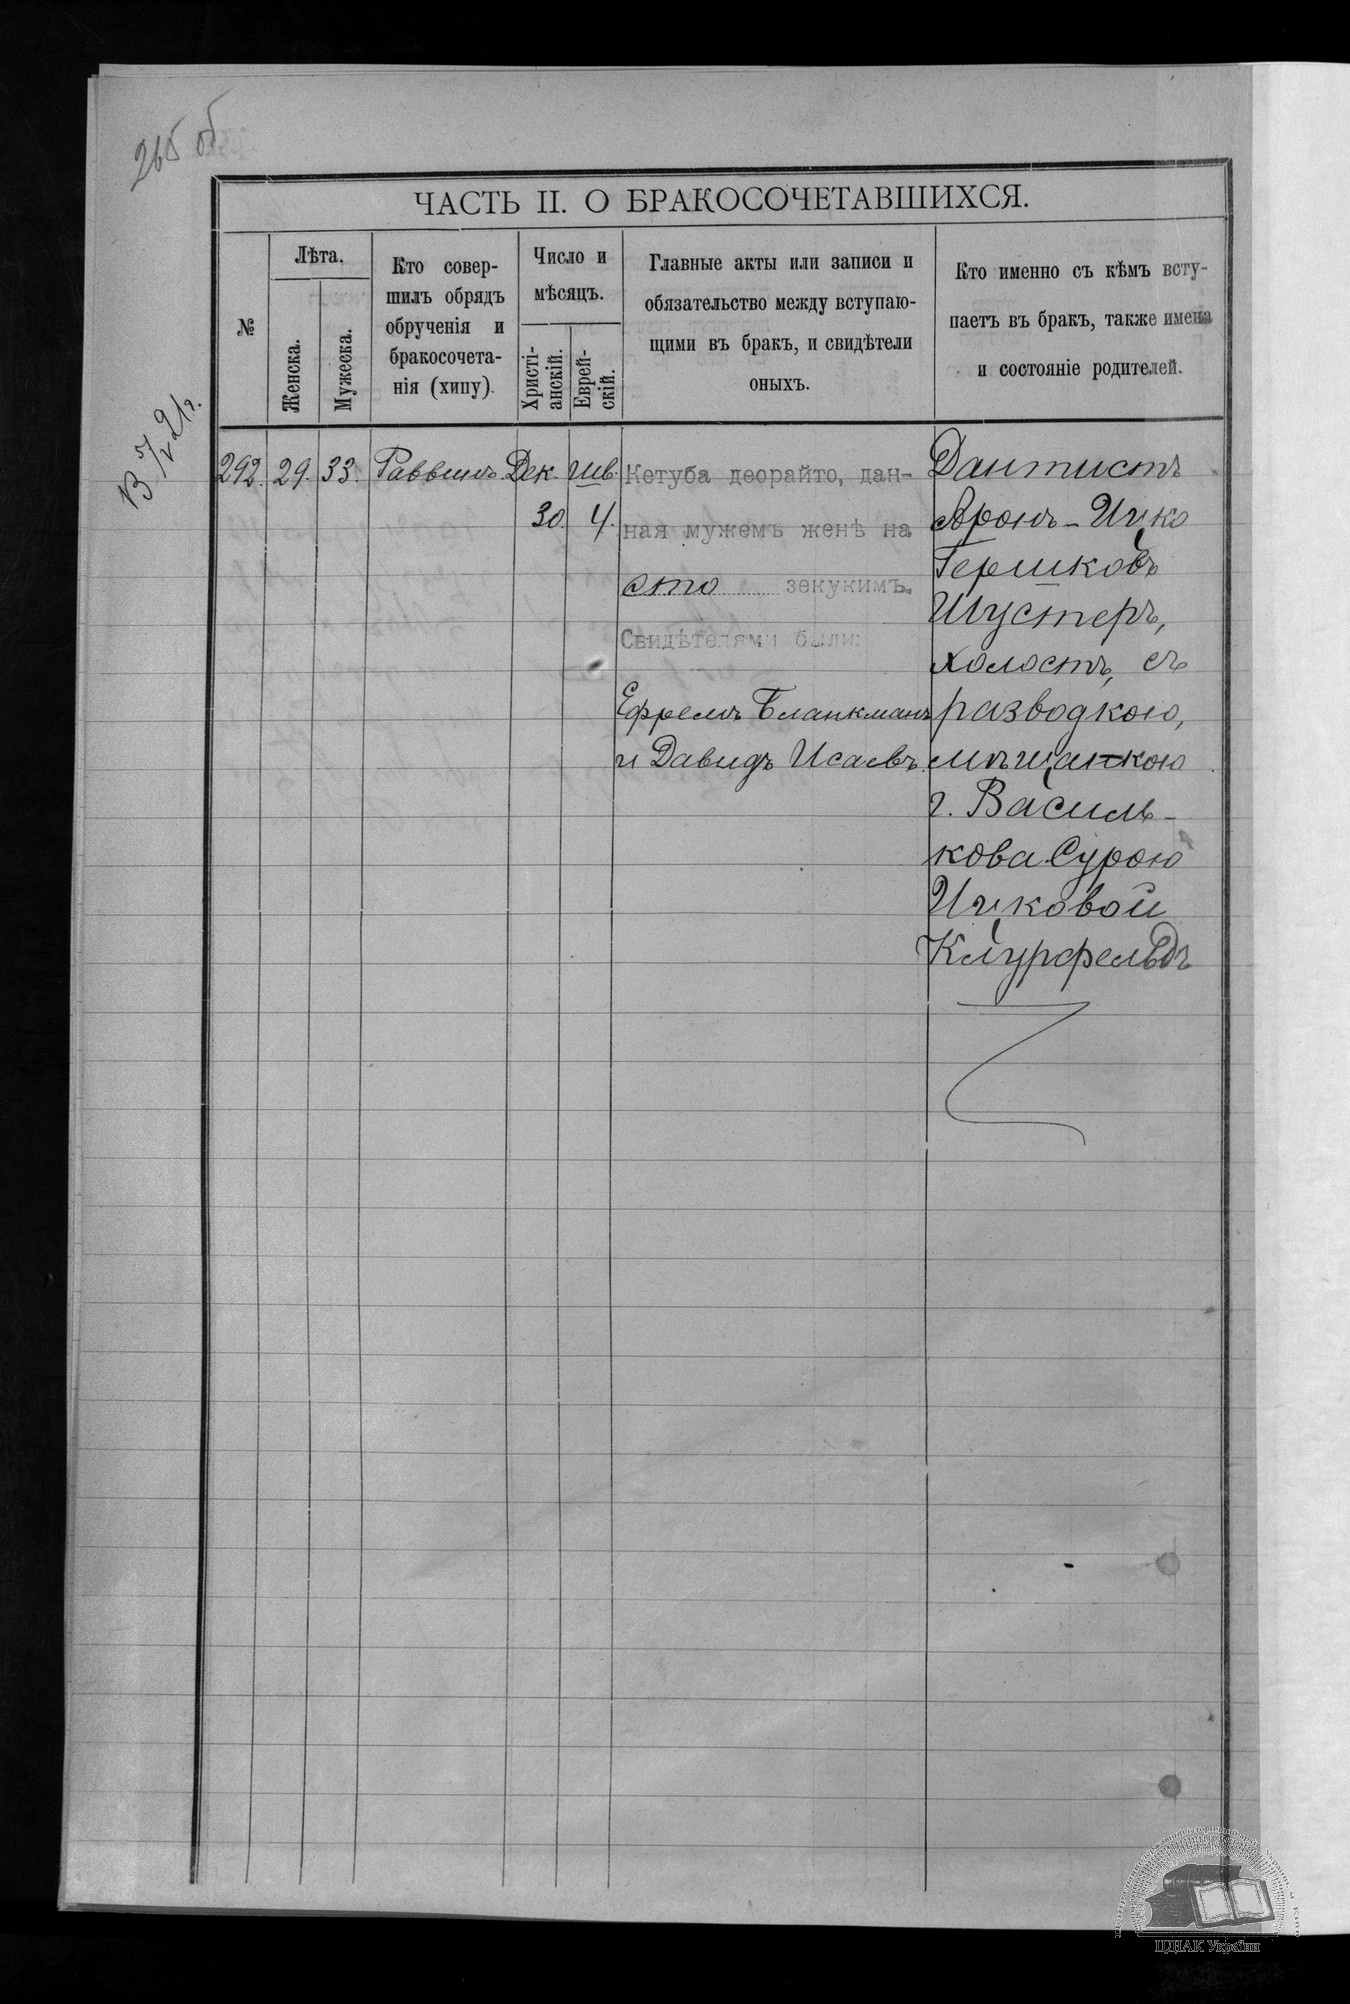 265 об
ЧАСТЬ II. О БРАКОСОЧЕТАВШИХСЯ.
№
Лѣта.
Женска.
Мужеска.
Кто совер-
шилъ обрядъ
обрученія и
бракосочета-
нія (хипу).
Число и
мѣсяцъ.
Христі-
анскій.
Еврей-
скій.
Главные акты или записи и
обязательство между вступаю-
щими въ бракъ, и свидѣтели
оныхъ.
Кто именно съ кѣмъ всту-
паетъ въ бракъ, также имена
и состояніе родителей.
В 7/2 21г.
292. 29. 33. Раввинъ Дек. Шв.
30. 4.
Кетуба деорайто, дан-
ная мужемъ женѣ на
сто зекукимъ.
Свидѣтелями были:
Ефремъ Бланкманъ
и Давидъ Исаевъ.
Дантистъ
Аронъ-Ицко
Гершковъ
Шустеръ,
холостъ, съ
разводкою,
мѣщанкою
г. Василь-
кова Сурою
Ицковой
Клурфельдъ
ЦДІАК України